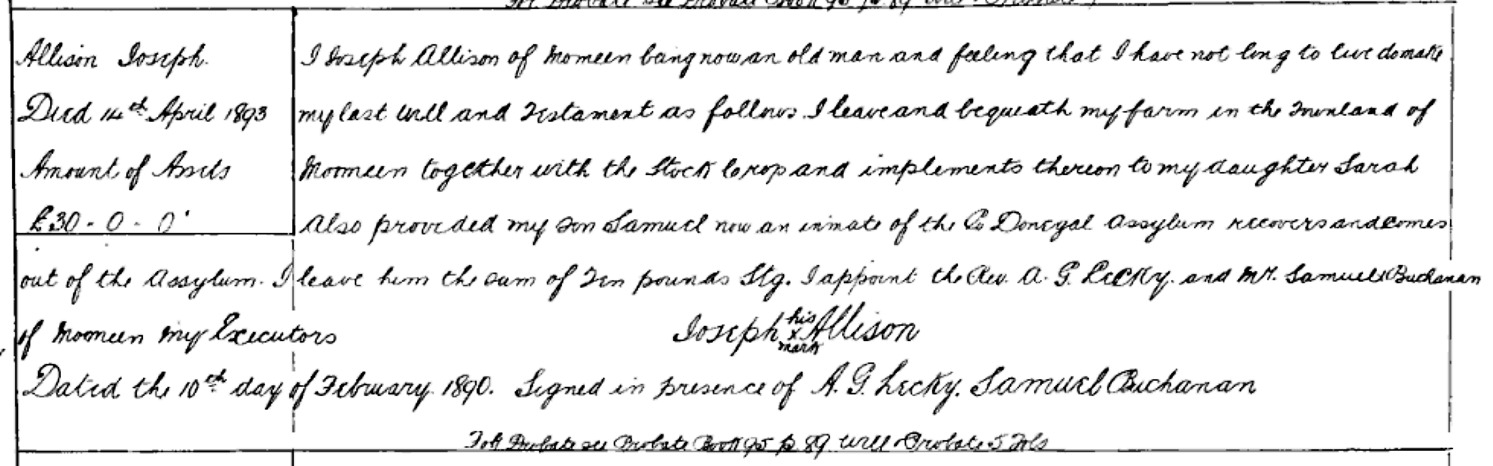 Allison Joseph.
Died 14th April 1893
Amount of Assets
£30 - 0 - 0
I Joseph Allison of Momeen being now an old man and feeling that I have not long to live do make
my last Will and Testament as follows. I leave and bequeath my farm in the Townland of
Momeen together with the Stock Crop and implements thereon to my daughter Sarah
Also provided my son Samuel now an inmate of the Co Donegal Assylum recovers and comes
out of the Assylum. I leave him the sum of Ten pounds Stg. I appoint the Rev. A. G. Lecky. and Mr. Samuel Buchanan
of Momeen my Executors
Joseph his x mark Allison
Dated the 10th day of February 1890. Signed in presence of A. G. Lecky. Samuel Buchanan
For Probate see Probate Book 95 p 89 Will & Probate 5 Fols